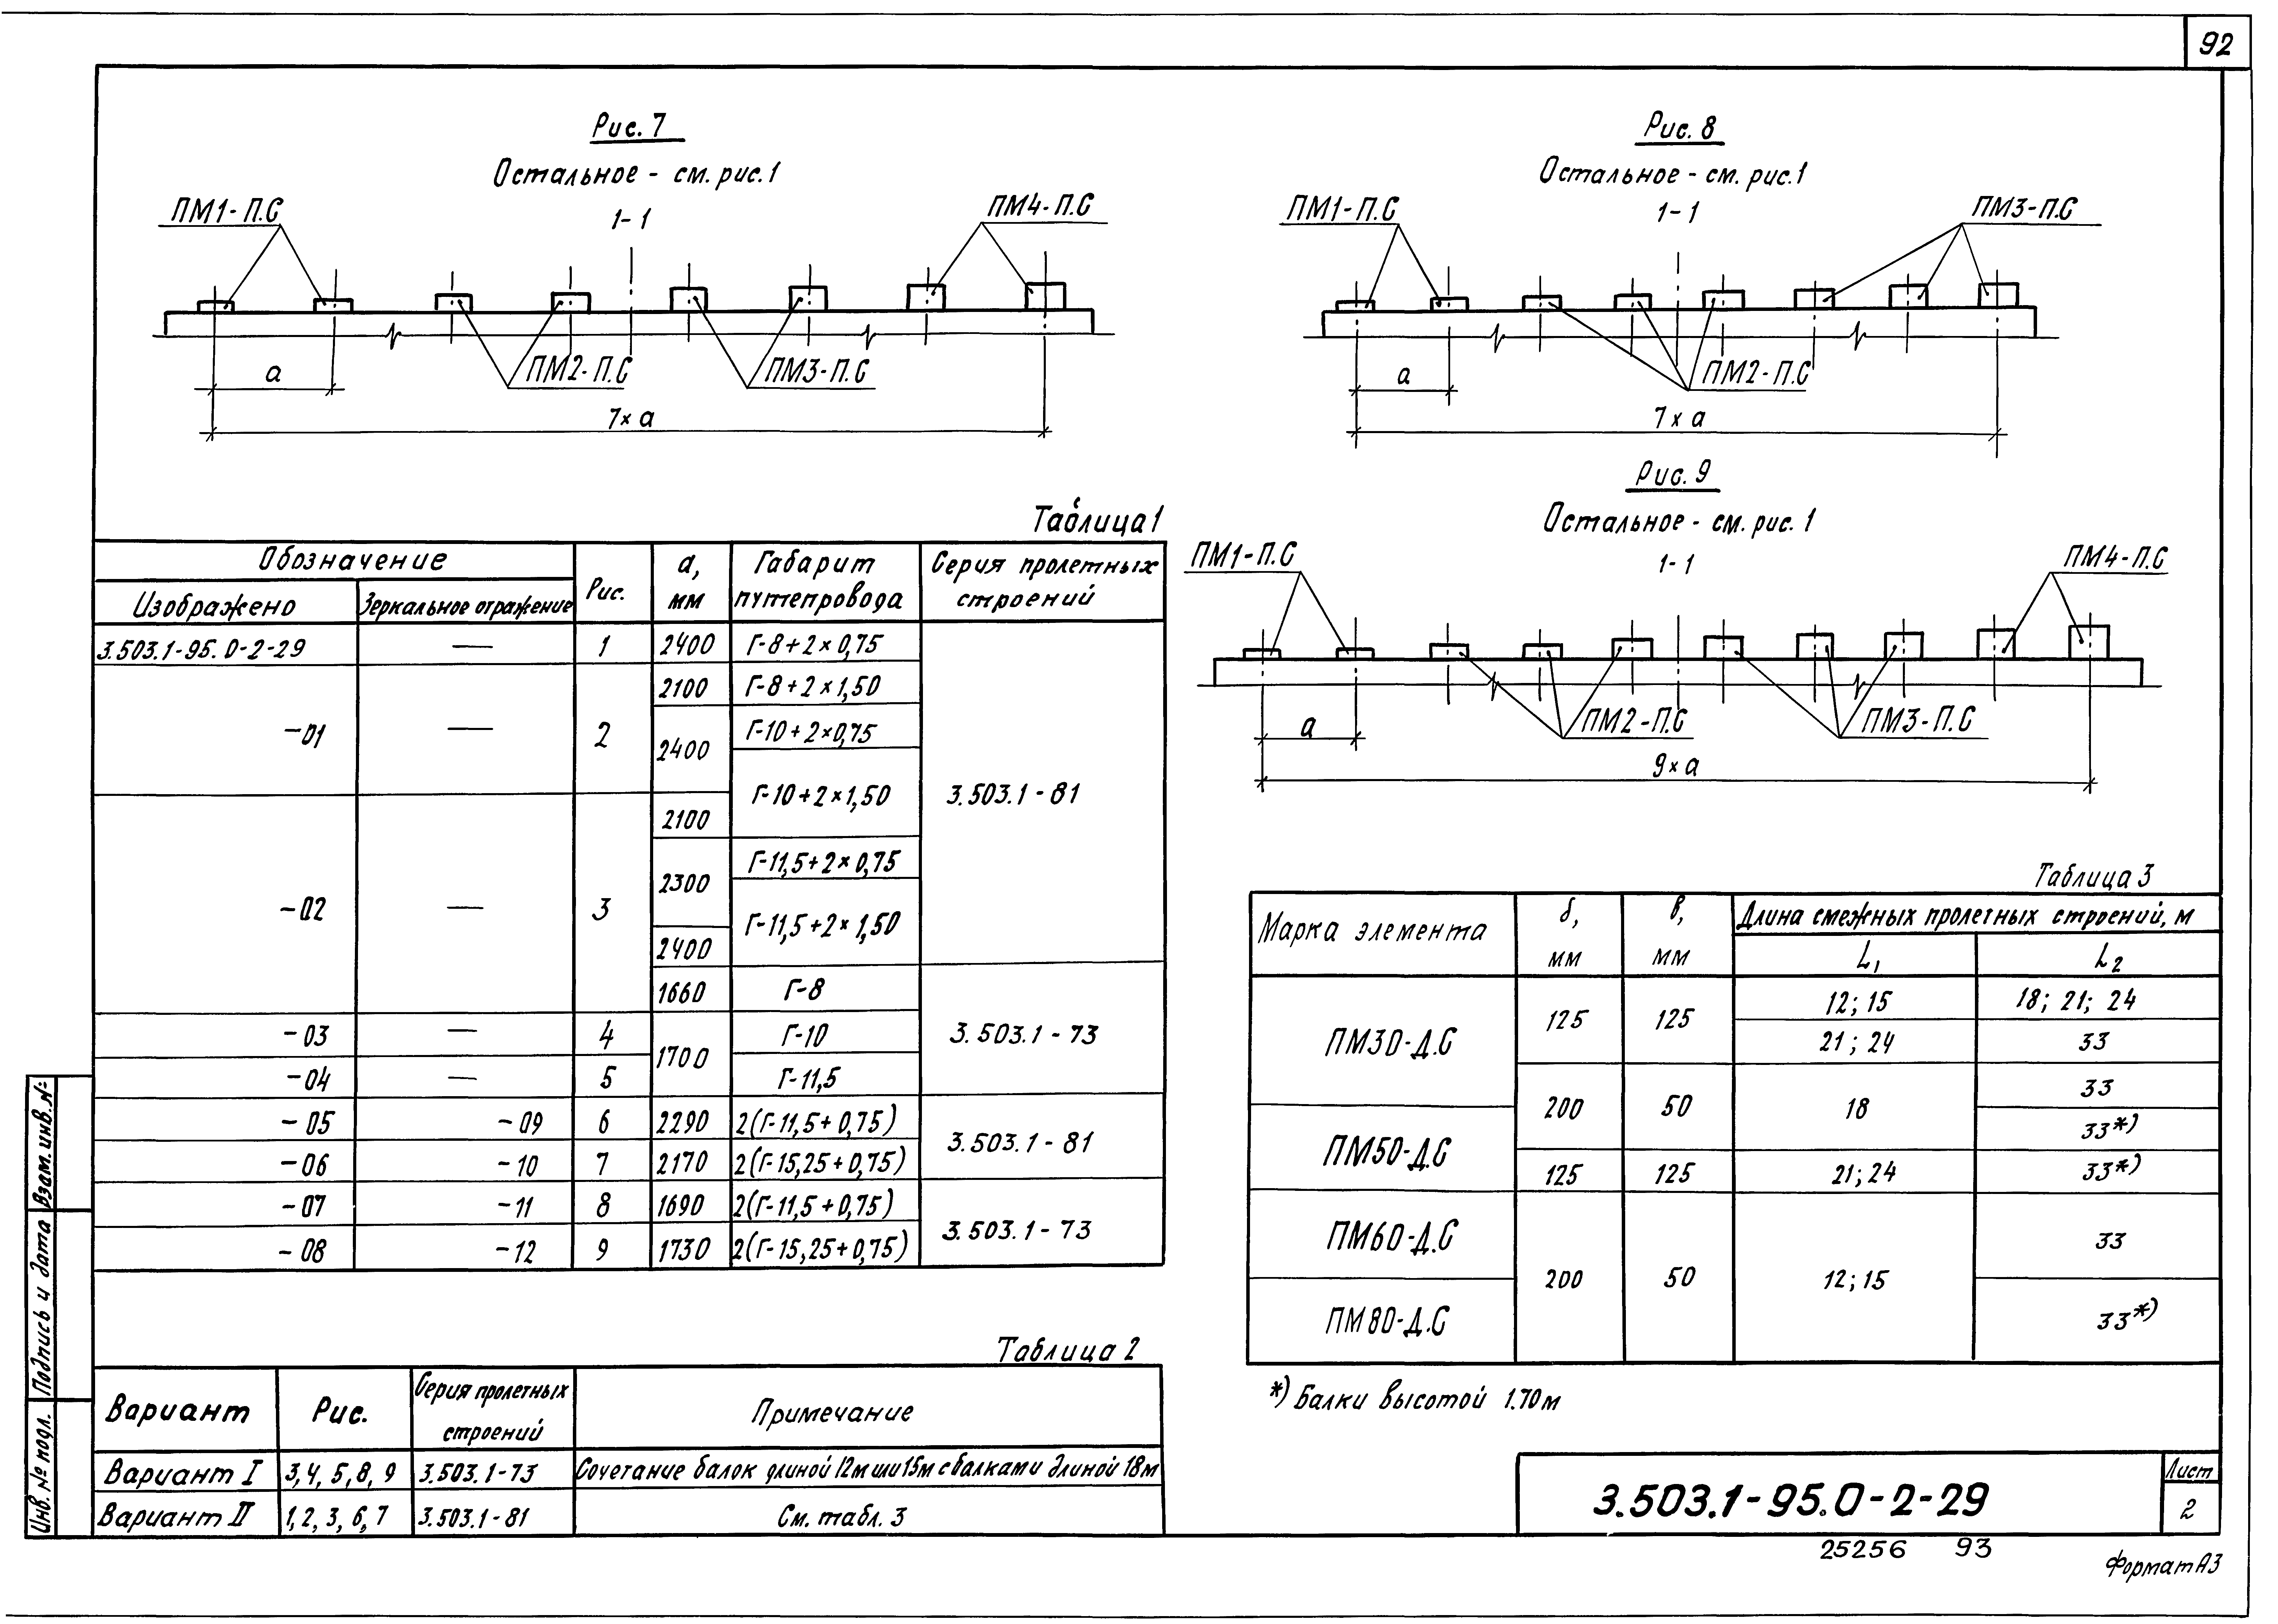 92
Рис. 7
Остальное - см. рис. 1
1-1
ПМ1-П.С
ПМ4-П.С
ПМ2-П.С
ПМ3-П.С
а
7×а
Рис. 8
Остальное - см. рис. 1
1-1
ПМ1-П.С
ПМ3-П.С
ПМ2-П.С
а
7×а
Рис. 9
Остальное - см. рис. 1
1-1
ПМ1-П.С
ПМ4-П.С
ПМ2-П.С
ПМ3-П.С
а
9×а
Таблица 1
Обозначение
Рис.
а, мм
Габарит путепровода
Серия пролетных строений
Изображено
Зеркальное отражение
3.503.1-95.0-2-29 — 1 2400 Г-8+2×0,75
2100 Г-8+2×1,50
-01 — 2 2400 Г-10+2×0,75
Г-10+2×1,50 3.503.1-81
2100
2300 Г-11,5+2×0,75
-02 — 3 Г-11,5+2×1,50
2400
1660 Г-8
-03 — 4 1700 Г-10 3.503.1-73
-04 — 5 Г-11,5
-05 -09 6 2290 2(Г-11,5+0,75) 3.503.1-81
-06 -10 7 2170 2(Г-15,25+0,75)
-07 -11 8 1690 2(Г-11,5+0,75) 3.503.1-73
-08 -12 9 1730 2(Г-15,25+0,75)
Таблица 2
Вариант
Рис.
Серия пролетных строений
Примечание
Вариант I 3, 4, 5, 8, 9 3.503.1-73 Сочетание балок длиной 12м или 15м с балками длиной 18м
Вариант II 1, 2, 3, 6, 7 3.503.1-81 См. табл. 3
Таблица 3
Марка элемента
б, мм
в, мм
Длина смежных пролетных строений, м
L1
L2
ПМ30-Д.С 125 125 12; 15 18; 21; 24
21; 24 33
200 50 18 33
ПМ50-Д.С 33*)
125 125 21; 24 33*)
ПМ60-Д.С 200 50 12; 15 33
ПМ80-Д.С 33*)
*) Балки высотой 1.70м
3.503.1-95.0-2-29
Лист
2
25256 93
Формат А3
Взам. инв. №
Подпись и дата
Инв. № подл.